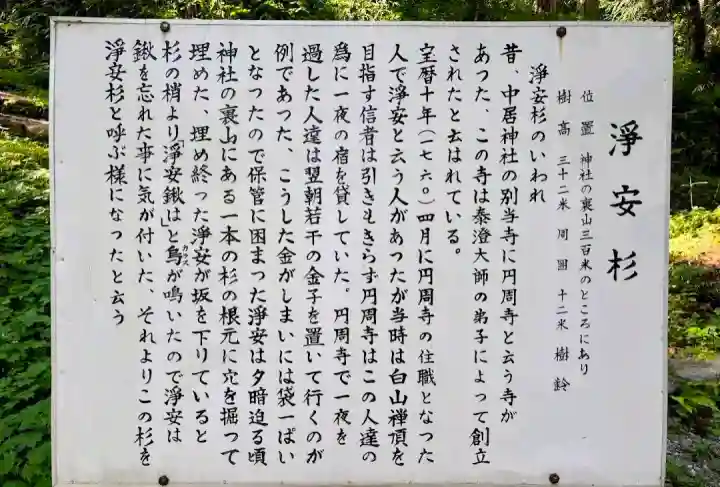 淨安杉
位置 神社の裏山三百米のところにあり
樹高 三十二米 周囲 十二米 樹齢
淨安杉のいわれ
昔、中居神社の別当寺に円周寺と云う寺が
あった、この寺は泰澄大師の弟子によって創立
されたと云はれている。
宝暦十年(一七六〇)四月に円周寺の住職となった
人で淨安と云う人があったが当時は白山禅頂を
目指す信者は引きもきらず円周寺はこの人達の
為に一夜の宿を貸していた。円周寺で一夜を
過した人達は翌朝若干の金子を置いて行くのが
例であった、こうした金がしまいには袋一ぱい
となったので保管に困まった淨安は夕暗迫る頃
神社の裏山にある一本の杉の根元に穴を掘って
埋めた、埋め終った淨安が坂を下りていると
杉の梢より「淨安鍬は」と烏カラスが鳴いたので淨安は
鍬を忘れた事に気が付いた、それよりこの杉を
淨安杉と呼ぶ様になったと云う